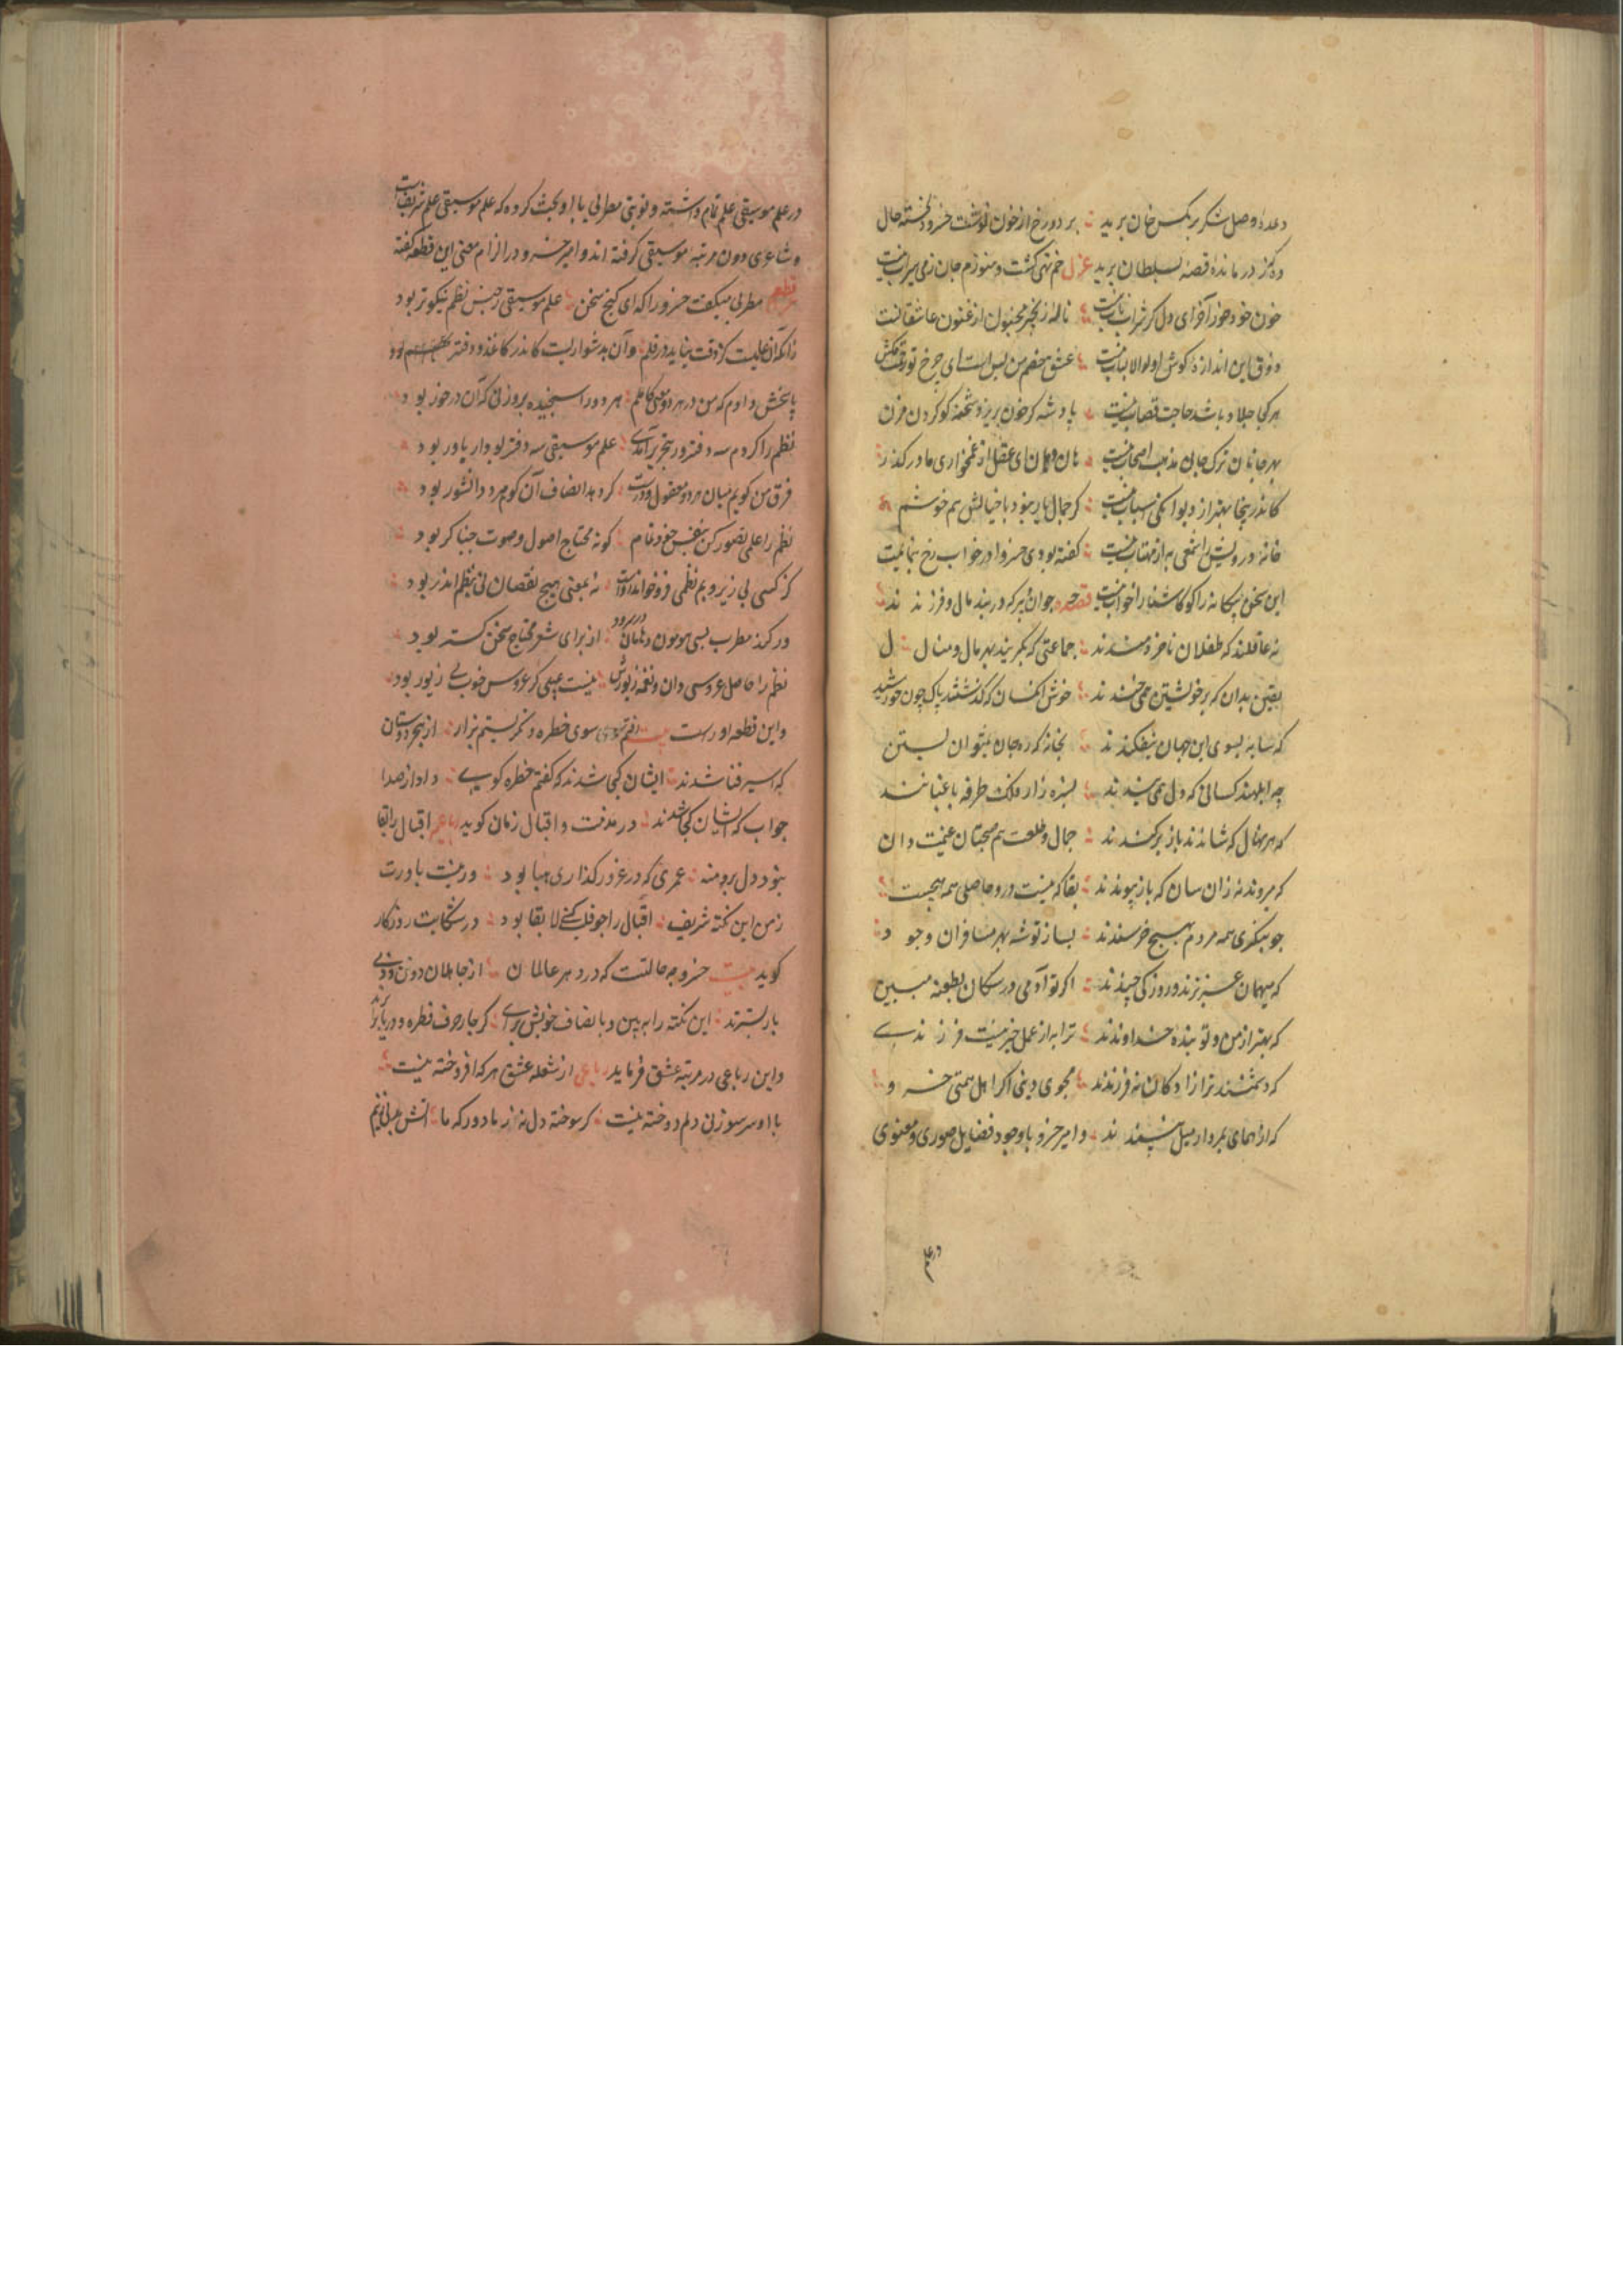 وعدهٔ وصل شکر بر مکس خان برید ؞ بر دو رخ از خون نوشت خسرو دلخسته حال
ده کز درمانده قصه بسلطان برید غزل خم تهی کشت و هنوزم جان ز می سیراب نیست
خون خود خور آخر ای دل کر شراب ناب نیست ؞ نالهٔ زنجیر مجنون ارغنون عاشقانست
ذوق این اندازهٔ کوش اولوالالباب نیست ؞ عشق خصم من بس است ای چرخ تو زحمت مکش
هر کجا جلاد باشد حاجت قصاب نیست ؞ پادشه کو خون بریز و شحنه کو کردن بزن
بهر جانان ترک جان مذهب اصحاب نیست ؞ هان و هان ای عقل از غمخواری ما در کذر
کاندر اینجا بهتر از دیوانکی اسباب نیست ؞ کر جمال یار نبود با خیالش هم خوشم
خانهٔ درویش را شمعی به از مهتاب نیست ؞ کفته بودی خسروا در خواب رخ بنمایمت
این سخن بیکانه را کو کاشنا را خواب نیست قصیده جوان و پیر که در بند مال و فرزندند
نه عاقلند که طفلان ناخردمندند ؞ جماعتی که بکریند بهر مال و منال
یقین بدان که بر خویشتن همی خندند ؞ خوش آن کسان که کذشتند پاک چون خورشید
که سایه بسوی این جهان نیفکندند ؞ بخانهٔ که ره جان نمیتوان بستن
چه ابلهند کسانی که دل همی بندند ؞ بسبزه زار فلک طرفه باغبانانند
که هر نهال که شاندند باز برکندند ؞ جمال و طلعت هم صحبتان غنیمت دان
که میروند نه زان سان که باز پیوندند ؞ بقا که نیست درو حاصلی همه هیچست
چو بنکری همه مردم بهیچ خرسندند ؞ بساز توشه بهر مسافران وجود
که میهمان عزیزند و روز کی چندند ؞ اکر تو آدمی در سکان بطعنه مبین
که بهتر از من و تو بندهٔ خداوندند ؞ ترا به از عمل خیر نیست فرزندی
که دشمنند ترا زادکان نه فرزندند ؞ مجوی دنیی اکر اهل همتی خسرو
که از همای بمردار میل نپسندند ؞ و امیر خسرو با وجود فضایل صوری و معنوی
در علم
در علم موسیقی علم تمام داشته و نوبتی مطربی با او بحث کرده که علم موسیقی علم شریفست
و شاعری دون مرتبه موسیقی کرفته اند و امیر خسرو در الزام معنی این قطعه کفته
قطعه مطربی میکفت خسرو را که ای کنج سخن ؞ علم موسیقی ز جنس نظم نیکوتر بود
زانکه آن علمیست کز دقت نیاید در قلم ؞ و آن نه دشوار است کاندر کاغذ و دفتر بود
پاسخش دادم که من در هر دو معنی کاملم ؞ هر دو را سنجیده بر وزنی که آن در خور بود
نظم را کردم سه دفتر ور بتحریر آمدی ؞ علم موسیقی سه دفتر بودی ار باور بود
فرق من کویم میان هر دو معقول و درست ؞ کر دهد انصاف آن کو هر دو دانشور بود
نظم را علمی تصور کن بنفس خود تمام ؞ کو نه محتاج اصول و صوت خنیاکر بود
کر کسی بی زیر و بم نظمی فروخواند رواست ؞ نه بمعنی هیچ نقصان نی بنظم اندر بود
ور کند مطرب بسی هون هون و هاهان در سرود ؞ از برای شعر محتاج سخن کستر بود
نظم را حاصل عروسی دان و نغمه زیورش ؞ نیست عیبی کر عروس خوب بی زیور بود
و این قطعه اوراست بیت رفتم سوی خطره و بکریستم بزار ؞ از هجر دوستان
که اسیر فنا شدند ؞ ایشان کجا شدند که کفتم خطره کوی ؞ داد از صدا
جواب که ایشان کجا شدند ؞ در مذمت و اقبال زمان کوید رباعی اقبال را بقا
نبود دل برو منه ؞ عمری که در غرور کذاری هبا بود ؞ ور نیست باورت
ز من این نکته شریف ؞ اقبال را چو قلب کنی لا بقا بود ؞ در شکایت روزکار
کوید بیت خسرو چه حالتست که در دهر عالمان ؞ از جاهلان دون
باربرترند ؞ این نکته را ببین و بانصاف خویش برآی ؞ کر چار حرف قطره و دریا
و این رباعی در مرتبه عشق فرماید رباعی از شعله عشق هر که افروخته نیست
با او سر سوزنی دلم دوخته نیست ؞ کر سوخته دل نهٔ ز ما دور که ما ؞ آتش بدلی زنیم